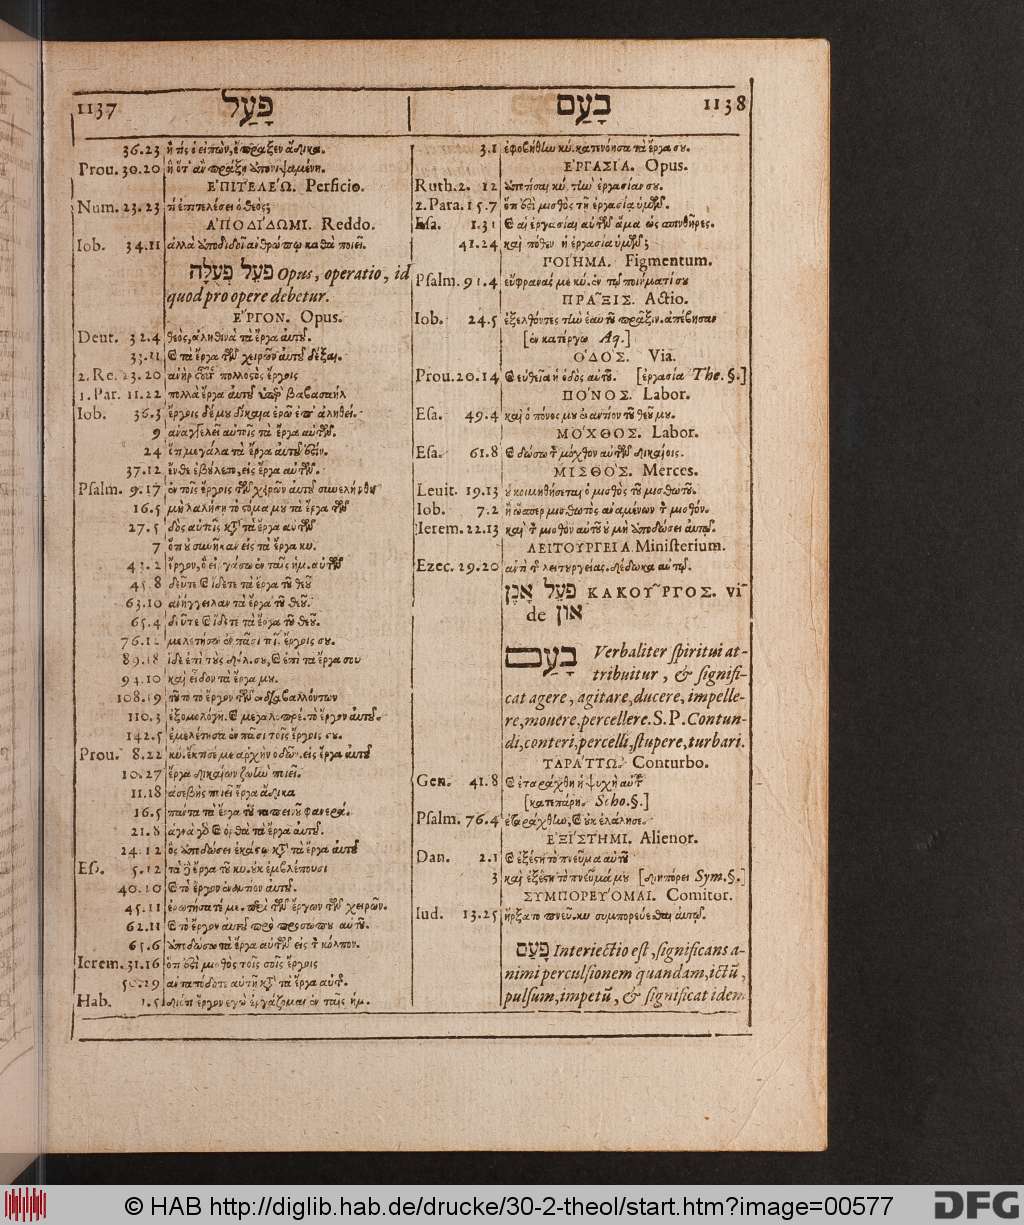 1137 פָּעַל
36.23 ἢ τίς ὁ εἰπὼν, ἔπραξεν ἄδικα.
Prou. 30.20 ἣ ὅτ' ἂν πράξῃ
ΕΠΙΤΕΛΕΏ. Perficio.
Num. 23.23 τί ἐπιτελέσει ὁ θεός;
ΑΠΟΔΊΔΩΜΙ. Reddo.
Iob. 34.11 ἀλλὰ ἀποδιδοῖ ἀνθρώπῳ καθὰ ποιεῖ.
פֹּעַל פְּעֻלָּה Opus, operatio, id
quod pro opere debetur.
ΕΎΡΓΟΝ. Opus.
Deut. 32.4 θεὸς, ἀληθινὰ τὰ ἔργα αὐτοῦ.
33.11 καὶ τὰ ἔργα τῶν χειρῶν αὐτοῦ δέξαι.
2. Re. 23.20 ἀνὴρ πολλοστὸς ἔργοις
1. Par. 11.22 πολλὰ ἔργα αὐτοῦ ὑπὲρ βαβασαὴλ
Iob. 36.3 ἔργοις δέ μου δίκαια ἐρῶ ἐπ' ἀληθεί.
9 ἀναγγελεῖ αὐτοῖς τὰ ἔργα αὐτῶν.
24 ὅτι μεγάλα τὰ ἔργα αὐτοῦ ἐστίν.
37.12 εἰς ἔργα αὐτῶν.
Psalm. 9.17 ἐν τοῖς ἔργοις τῶν χειρῶν αὐτοῦ συνελήφθη
16.5 μὴ λαλήσῃ τὸ στόμα μου τὰ ἔργα τῶν
27.5 δὸς αὐτοῖς κατὰ τὰ ἔργα αὐτῶν
7 ὅτι οὐ συνῆκαν εἰς τὰ ἔργα κυ.
43.2 ἔργον, ὃ εἰργάσω ἐν ταῖς ἡμ. αὐτῶν
45.8 δεῦτε καὶ ἴδετε τὰ ἔργα τοῦ θεοῦ
63.10 ἀνήγγειλαν τὰ ἔργα τοῦ θεοῦ.
65.4 δεῦτε καὶ ἴδετε τὰ ἔργα τοῦ θεοῦ.
76.12 μελετήσω ἐν πᾶσι τοῖς ἔργοις σου.
89.18 ἴδε ἐπὶ τοὺς δούλ. σου, καὶ ἐπὶ τὰ ἔργα σου
94.10 καὶ εἶδον τὰ ἔργα μου.
108.19 τοῦτο τὸ ἔργον τῶν ἐνδιαβαλλόντων
110.3 ἐξομολόγη. καὶ μεγαλοπρέ. τὸ ἔργον αὐτοῦ.
142.5 ἐμελέτησα ἐν πᾶσι τοῖς ἔργοις σου.
Prou. 8.22 κυ. ἔκτισέ με ἀρχὴν ὁδῶν. εἰς ἔργα αὐτοῦ
10.27 ἔργα δικαίων ζωὴν ποιεῖ.
11.18 ἀσεβὴς ποιεῖ ἔργα ἄδικα
16.5 πάντα τὰ ἔργα τοῦ ταπεινοῦ φανερά.
21.8 ἁγνὰ γὰρ καὶ ὀρθὰ τὰ ἔργα αὐτοῦ.
24.12 ὃς ἀποδώσει ἑκάστῳ κατὰ τὰ ἔργα αὐτοῦ
Esa. 5.12 τὰ δὲ ἔργα τοῦ κυ. οὐκ ἐμβλέπουσι
40.10 καὶ τὸ ἔργον ἐναντίον αὐτοῦ.
45.11 ἐρωτήσατέ με. περὶ τῶν ἔργων τῶν χειρῶν.
62.11 καὶ τὸ ἔργον αὐτοῦ πρὸ προσώπου αὐτοῦ.
65.6 ἀποδώσω τὰ ἔργα αὐτῶν εἰς τὸν κόλπον.
Ierem. 31.16 ὅτι ἐστὶ μισθὸς τοῖς σοῖς ἔργοις
50.29 ἀνταπόδοτε αὐτῇ κατὰ τὰ ἔργα αὐτῆς.
Hab. 1.5 διότι ἔργον ἐγὼ ἐργάζομαι ἐν ταῖς ἡμ.
פָּעַם 1138
3.1 ἐφοβήθην κυ. κατενόησα τὰ ἔργα σου.
ΕΡΓΑΣΊΑ. Opus.
Ruth. 2. 12 ἀποτίσαι κύ. τὴν ἐργασίαν σου.
2. Para. 15.7 ὅτι ἐστὶ μισθὸς τῇ ἐργασίᾳ ὑμῶν.
Esa. 1.31 καὶ αἱ ἐργασίαι αὐτῶν ἅμα ὡς σπινθῆρες.
41.24 καὶ πόθεν ἡ ἐργασία ὑμῶν;
ΠΟΊΗΜΑ. Figmentum.
Psalm. 91.4 εὔφρανάς με κύ. ἐν τῷ ποιήματί σου
ΠΡΑ͂ΞΙΣ. Actio.
Iob. 24.5 ἐξελθόντες τὴν ἑαυτῶν πρᾶξιν. ἀπέβησαν
[ἐν κατέργῳ Aq.]
Ο῾ΔΟΣ. Via.
Prou. 20.14 καὶ εὐθεῖα ἡ ὁδὸς αὐτοῦ. [ἐργασία The. §.]
ΠΟΝΟΣ. Labor.
Esa. 49.4 καὶ ὁ πόνος μου ἐναντίον τοῦ θεοῦ μου.
ΜΟΧΘΟΣ. Labor.
Esa. 61.8 καὶ δώσω τὸν μόχθον αὐτῶν δικαίοις.
ΜΙΣΘΟΣ. Merces.
Leuit. 19.13 οὐ κοιμηθήσεται ὁ μισθὸς τοῦ μισθωτοῦ.
Iob. 7.2 ἢ ὥσπερ μισθωτὸς ἀναμένων τὸν μισθόν.
Ierem. 22.13 καὶ τὸν μισθὸν αὐτοῦ οὐ μὴ ἀποδώσει αὐτῷ.
ΛΕΙΤΟΥΡΓΕΙΑ. Ministerium.
Ezec. 29.20 ἀντὶ τῆς λειτουργείας. δέδωκα αὐτῷ.
פֹּעֵל אָוֶן ΚΑΚΟΥ͂ΡΓΟΣ. vi-
de און
פָּעַם Verbaliter spiritui at-
tribuitur, & signifi-
cat agere, agitare, ducere, impelle-
re, mouere, percellere. S. P. Contun-
di, conteri, percelli, stupere, turbari.
ΤΑΡΑΤΤΩ. Conturbo.
Gen. 41.8 καὶ ἐταράχθη ἡ ψυχὴ αὐτοῦ
[κατεπάρη. Scho. §.]
Psalm. 76.4 ἐταράχθην, καὶ οὐκ ἐλάλησα.
ΕΞΊΣΤΗΜΙ. Alienor.
Dan. 2.1 καὶ ἐξέστη τὸ πνεῦμα αὐτοῦ
3 καὶ ἐξέστη τὸ πνεῦμά μου [διηπόρει Sym. §.]
ΣΥΜΠΟΡΕΎΟΜΑΙ. Comitor.
Iud. 13.25 ἤρξατο πνεῦ. κυ συμπορεύεσθαι αὐτῷ.
פָּעַם Interiectio est, significans a-
nimi perculsionem quandam, ictū,
pulsum, impetū, & significat idem
© HAB http://diglib.hab.de/drucke/30-2-theol/start.htm?image=00577
DFG